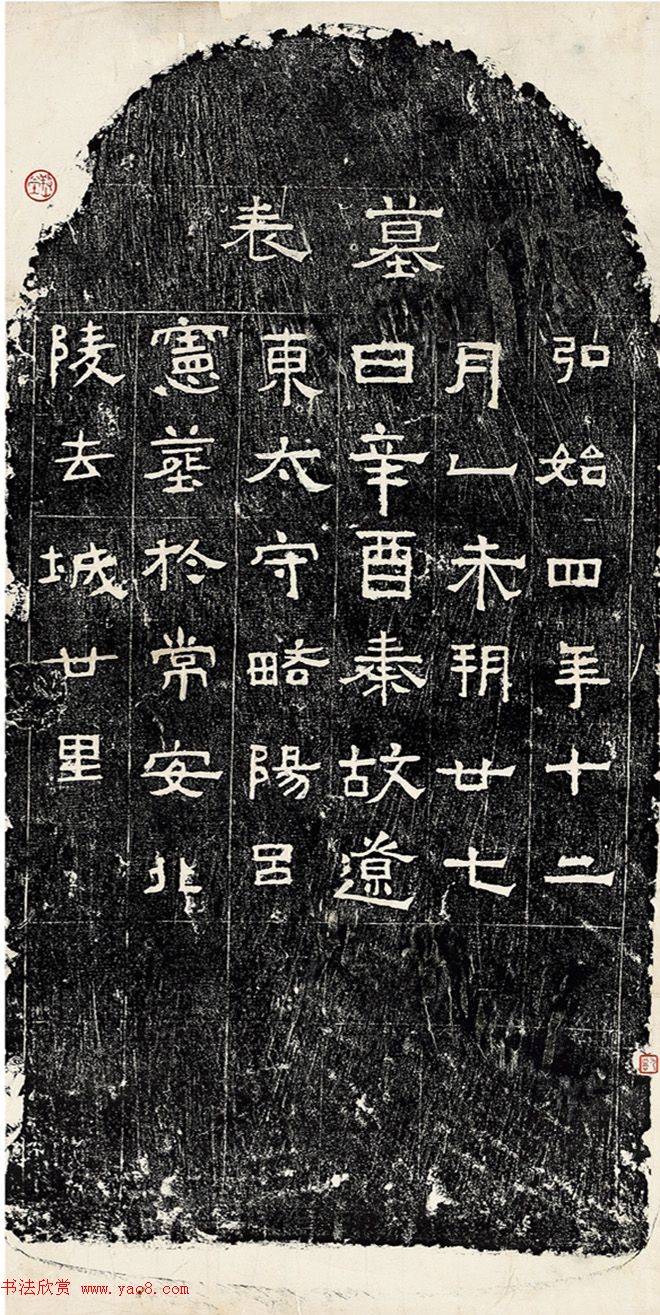 墓表
弘始四年十二
月乙未朔廿七
日辛酉秦故遼
東太守略陽呂
憲葬於常安北
陵去城廿里
书法欣赏 www.yao8.com